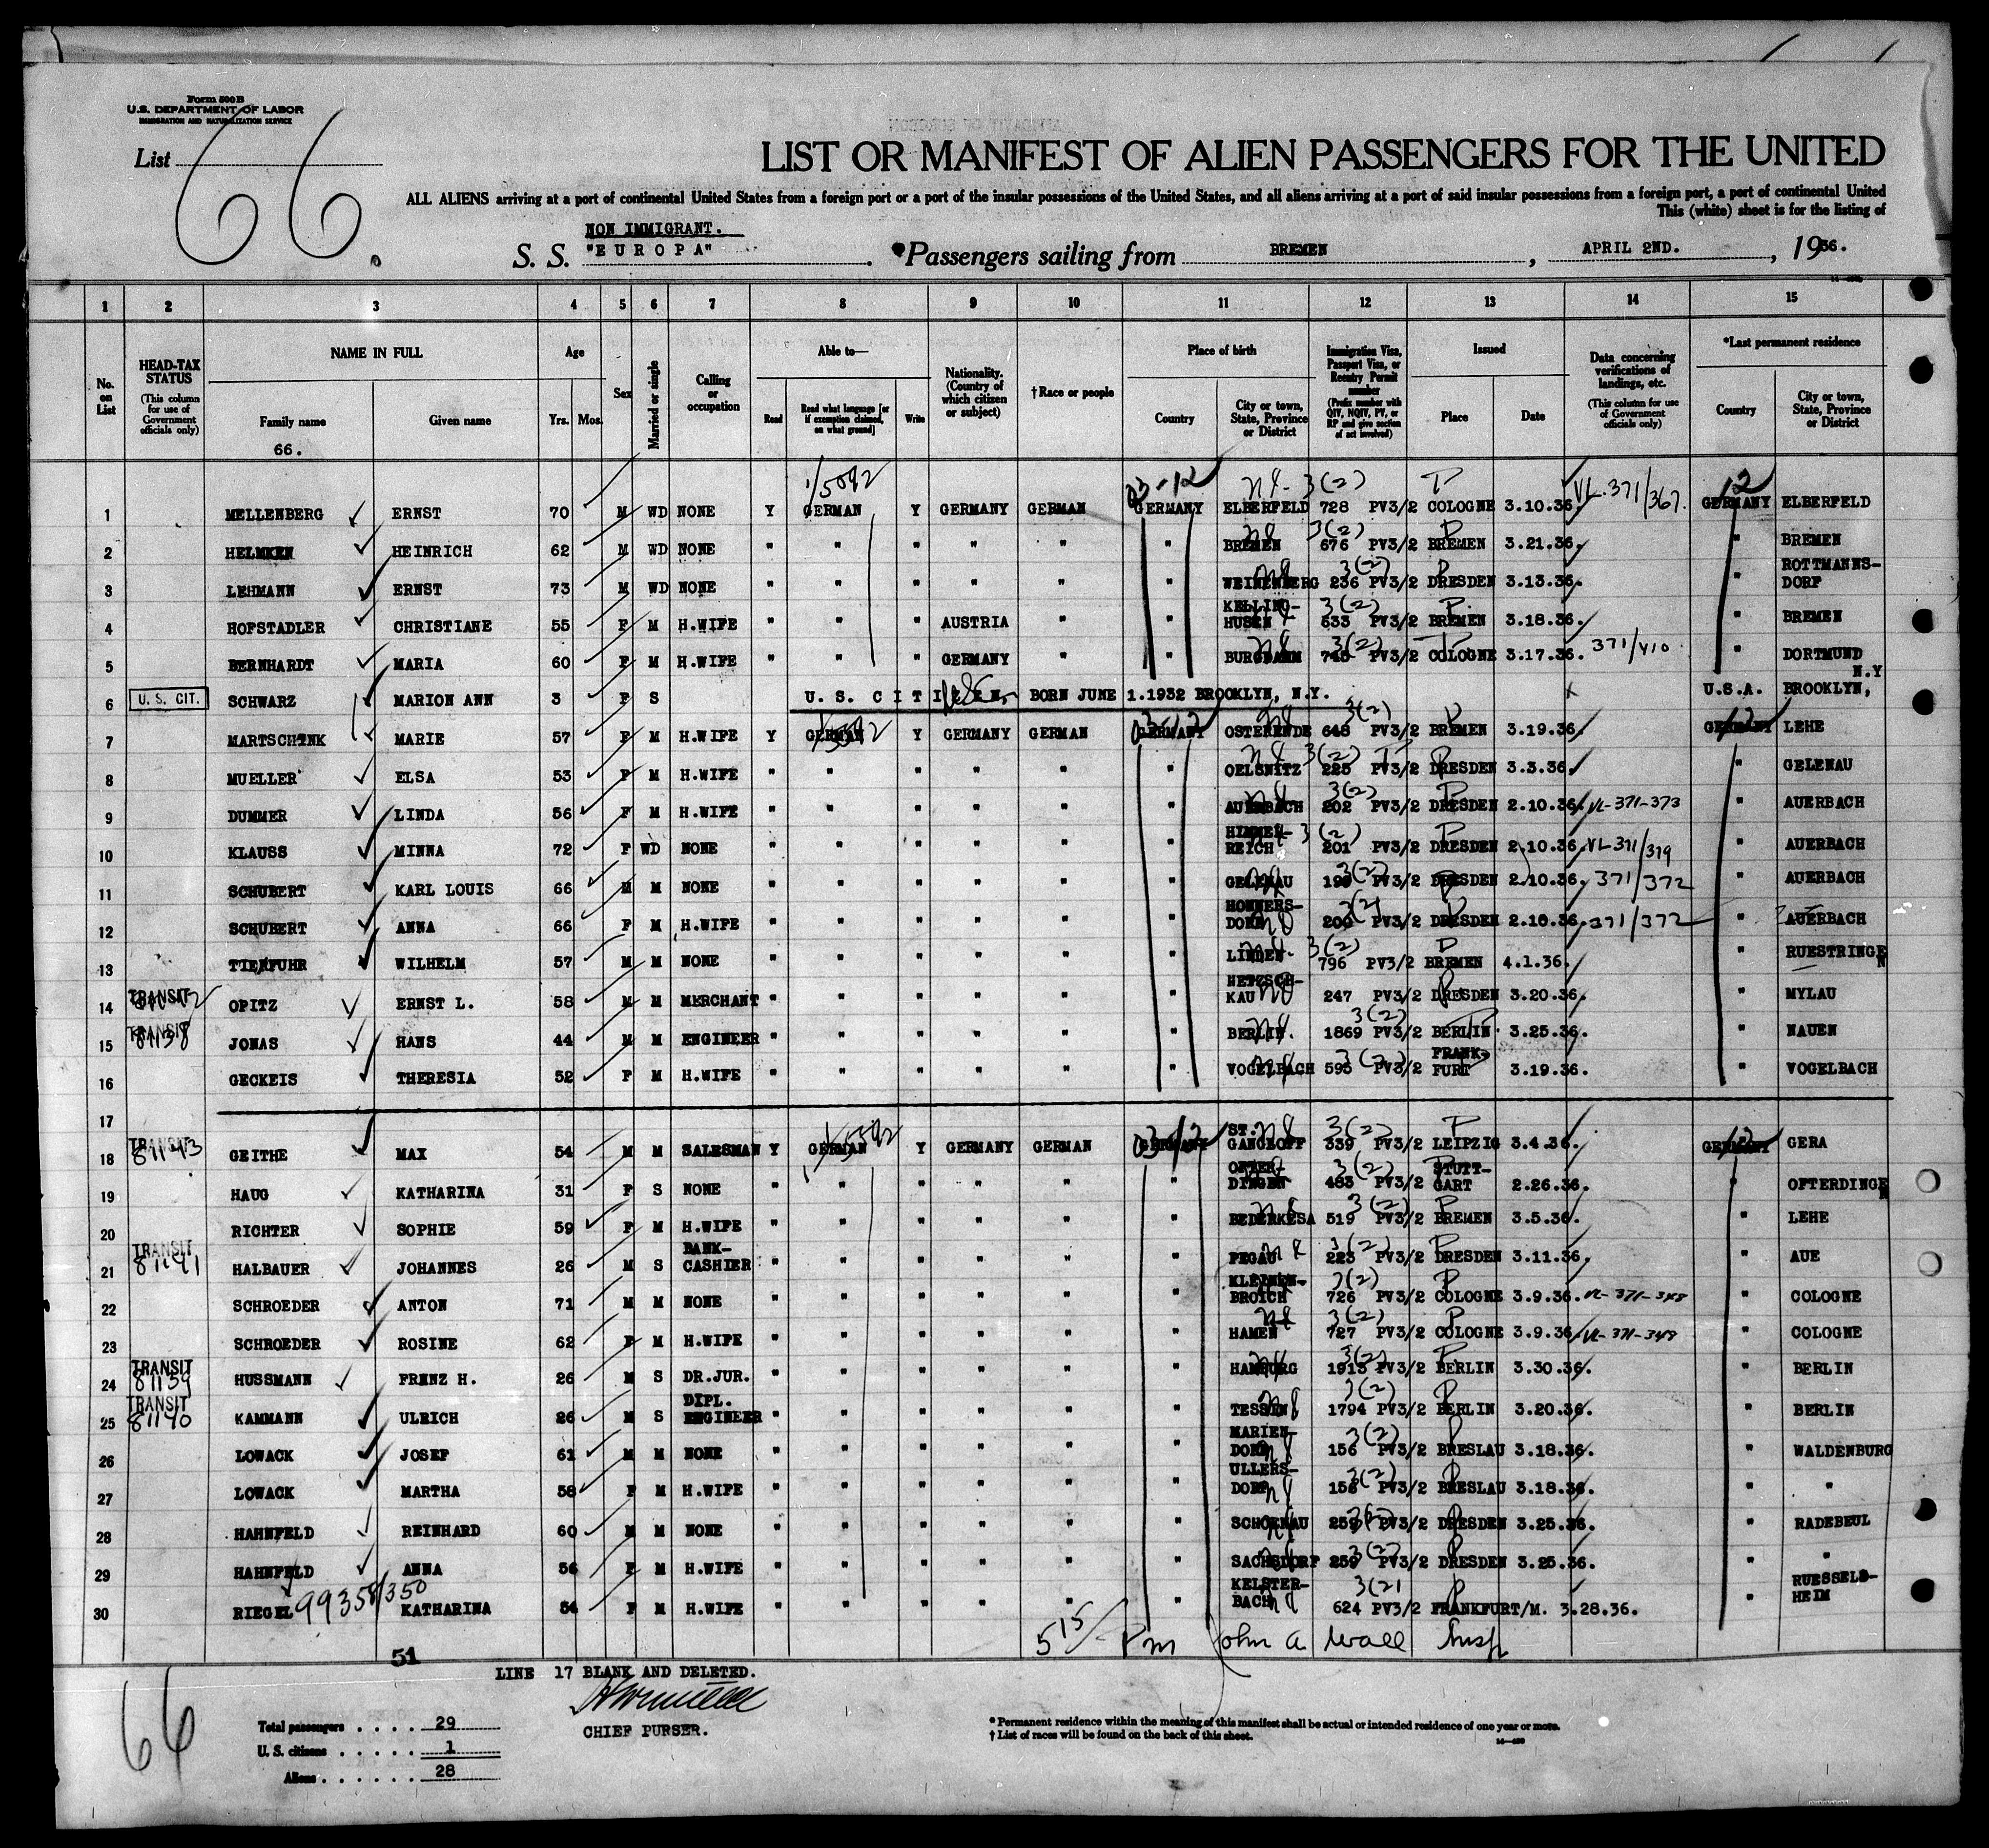 Form 500 B
U.S. DEPARTMENT OF LABOR
IMMIGRATION AND NATURALIZATION SERVICE
List 66.
LIST OR MANIFEST OF ALIEN PASSENGERS FOR THE UNITED
ALL ALIENS arriving at a port of continental United States from a foreign port or a port of the insular possessions of the United States, and all aliens arriving at a port of said insular possessions from a foreign port, a port of continental United
This (white) sheet is for the listing of
NON IMMIGRANT.
S. S. "EUROPA" Passengers sailing from BREMEN, APRIL 2ND., 1936.
1 2 3 4 5 6 7 8 9 10 11 12 13 14 15
No. on List
HEAD-TAX STATUS (This column for use of Government officials only)
NAME IN FULL Family name Given name
66.
Age Yrs. Mos.
Sex
Married or single
Calling or occupation
Able to— Read Read what language [or if exemption claimed, on what ground] Write
Nationality. (Country of which citizen or subject)
†Race or people
Place of birth Country City or town, State, Province or District
Immigration Visa, Passport Visa, or Reentry Permit number (Prefix number with QIV, NQIV, PV, or RP and give section of act involved)
Issued Place Date
Data concerning verifications of landings, etc. (This column for use of Government officials only)
*Last permanent residence Country City or town, State, Province or District
1 MELLENBERG ERNST 70 M WD NONE Y GERMAN Y GERMANY GERMAN GERMANY ELBERFELD 728 PV3/2 COLOGNE 3.10.36. VL.371/367. GERMANY ELBERFELD
2 HELMKEN HEINRICH 62 M WD NONE " " " " " " BREMEN 676 PV3/2 BREMEN 3.21.36. " BREMEN
3 LEHMANN ERNST 73 M WD NONE " " " " " " 236 PV3/2 DRESDEN 3.13.36. " ROTTMANNS-DORF
4 HOFSTADLER CHRISTIANE 55 F M H.WIFE " " " AUSTRIA " " KELLING-HUSEN 633 PV3/2 BREMEN 3.18.36. " BREMEN
5 BERNHARDT MARIA 60 F M H.WIFE " " " GERMANY " " PV3/2 COLOGNE 3.17.36. 371/410 " DORTMUND
6 U.S. CIT. SCHWARZ MARION ANN 3 F S U.S. CITIZEN, BORN JUNE 1.1932 BROOKLYN, N.Y. U.S.A. BROOKLYN, N.Y
7 MARTSCHINK MARIE 57 F M H.WIFE Y GERMAN Y GERMANY GERMAN GERMANY OSTERENDE 648 PV3/2 BREMEN 3.19.36. GERMANY LEHE
8 MUELLER ELSA 53 F M H.WIFE " " " " " " OELSNITZ 225 PV3/2 DRESDEN 3.3.36. " GELENAU
9 DUMMER LINDA 56 F M H.WIFE " " " " " " AUERBACH 202 PV3/2 DRESDEN 2.10.36. VL-371-373 " AUERBACH
10 KLAUSS MINNA 72 F WD NONE " " " " " " HIMMEL-REICH 201 PV3/2 DRESDEN 2.10.36. VL371/379 " AUERBACH
11 SCHUBERT KARL LOUIS 66 M M NONE " " " " " " GELENAU PV3/2 DRESDEN 2.10.36. 371/372 " AUERBACH
12 SCHUBERT ANNA 66 F M H.WIFE " " " " " " 200 PV3/2 DRESDEN 2.10.36. 371/372 " AUERBACH
13 TIEFUHR WILHELM 57 M M NONE " " " " " " LINDEN 796 PV3/2 BREMEN 4.1.36. " RUESTRINGEN
14 TRANSIT OPITZ ERNST L. 58 M M MERCHANT " " " " " " 247 PV3/2 DRESDEN 3.20.36. " MYLAU
15 TRANSIT 81138 JONAS HANS 44 M M ENGINEER " " " " " " BERLIN. 1869 PV3/2 BERLIN 3.25.36. " NAUEN
16 GECKEIS THERESIA 52 F M H.WIFE " " " " " " VOGELBACH 595 PV3/2 FRANK-FURT 3.19.36. " VOGELBACH
17
18 TRANSIT 81143 GEITHE MAX 54 M M SALESMAN Y GERMAN Y GERMANY GERMAN GERMANY ST. GANGLOFF 339 PV3/2 LEIPZIG 3.4.36. GERMANY GERA
19 HAUG KATHARINA 31 F S NONE " " " " " " OFTER-DINGEN 483 PV3/2 STUTT-GART 2.26.36. " OFTERDINGEN
20 RICHTER SOPHIE 59 F M H.WIFE " " " " " " BEDERKESA 519 PV3/2 BREMEN 3.5.36. " LEHE
21 TRANSIT 81141 HALBAUER JOHANNES 26 M S BANK-CASHIER " " " " " " PEGAU 223 PV3/2 DRESDEN 3.11.36. " AUE
22 SCHROEDER ANTON 71 M M NONE " " " " " " KLEINEN-BROICH 726 PV3/2 COLOGNE 3.9.36. VL-371-348 " COLOGNE
23 SCHROEDER ROSINE 62 F M H.WIFE " " " " " " HAMEN 727 PV3/2 COLOGNE 3.9.36. VL-371-348 " COLOGNE
24 TRANSIT 81139 HUSSMANN FRENZ H. 26 M S DR.JUR. " " " " " " HAMBURG 1913 PV3/2 BERLIN 3.30.36. " BERLIN
25 TRANSIT 81140 KAMMANN ULRICH 26 M S DIPL. ENGINEER " " " " " " TESSIN 1794 PV3/2 BERLIN 3.20.36. " BERLIN
26 LOWACK JOSEF 61 M M NONE " " " " " " MARIEN-DORF 156 PV3/2 BRESLAU 3.18.36. " WALDENBURG
27 LOWACK MARTHA 58 F M H.WIFE " " " " " " ULLERS-DORF 156 PV3/2 BRESLAU 3.18.36. " "
28 HAHNFELD REINHARD 60 M M NONE " " " " " " SCHOENAU 259 PV3/2 DRESDEN 3.25.36. " RADEBEUL
29 HAHNFELD ANNA 56 F M H.WIFE " " " " " " SACHSDORF 259 PV3/2 DRESDEN 3.25.36. " "
30 RIEGEL 99358/350 KATHARINA 54 F M H.WIFE " " " " " " KELSTER-BACH 624 PV3/2 FRANKFURT/M. 3.28.36. " RUESSELS-HEIM
5 15/ Pm John A Wall Insp
51
LINE 17 BLANK AND DELETED.
CHIEF PURSER.
66
Total passengers .... 29
U. S. citizens ..... 1
Aliens ...... 28
*Permanent residence within the meaning of this manifest shall be actual or intended residence of one year or more.
† List of races will be found on the back of this sheet.